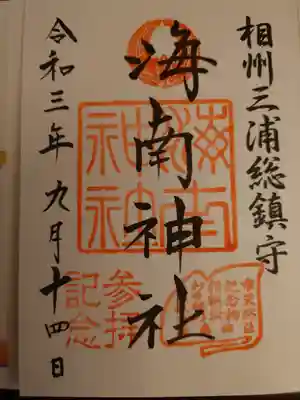 相州三浦総鎮守
海南神社
海南神社
参拝記念
令和三年九月十四日